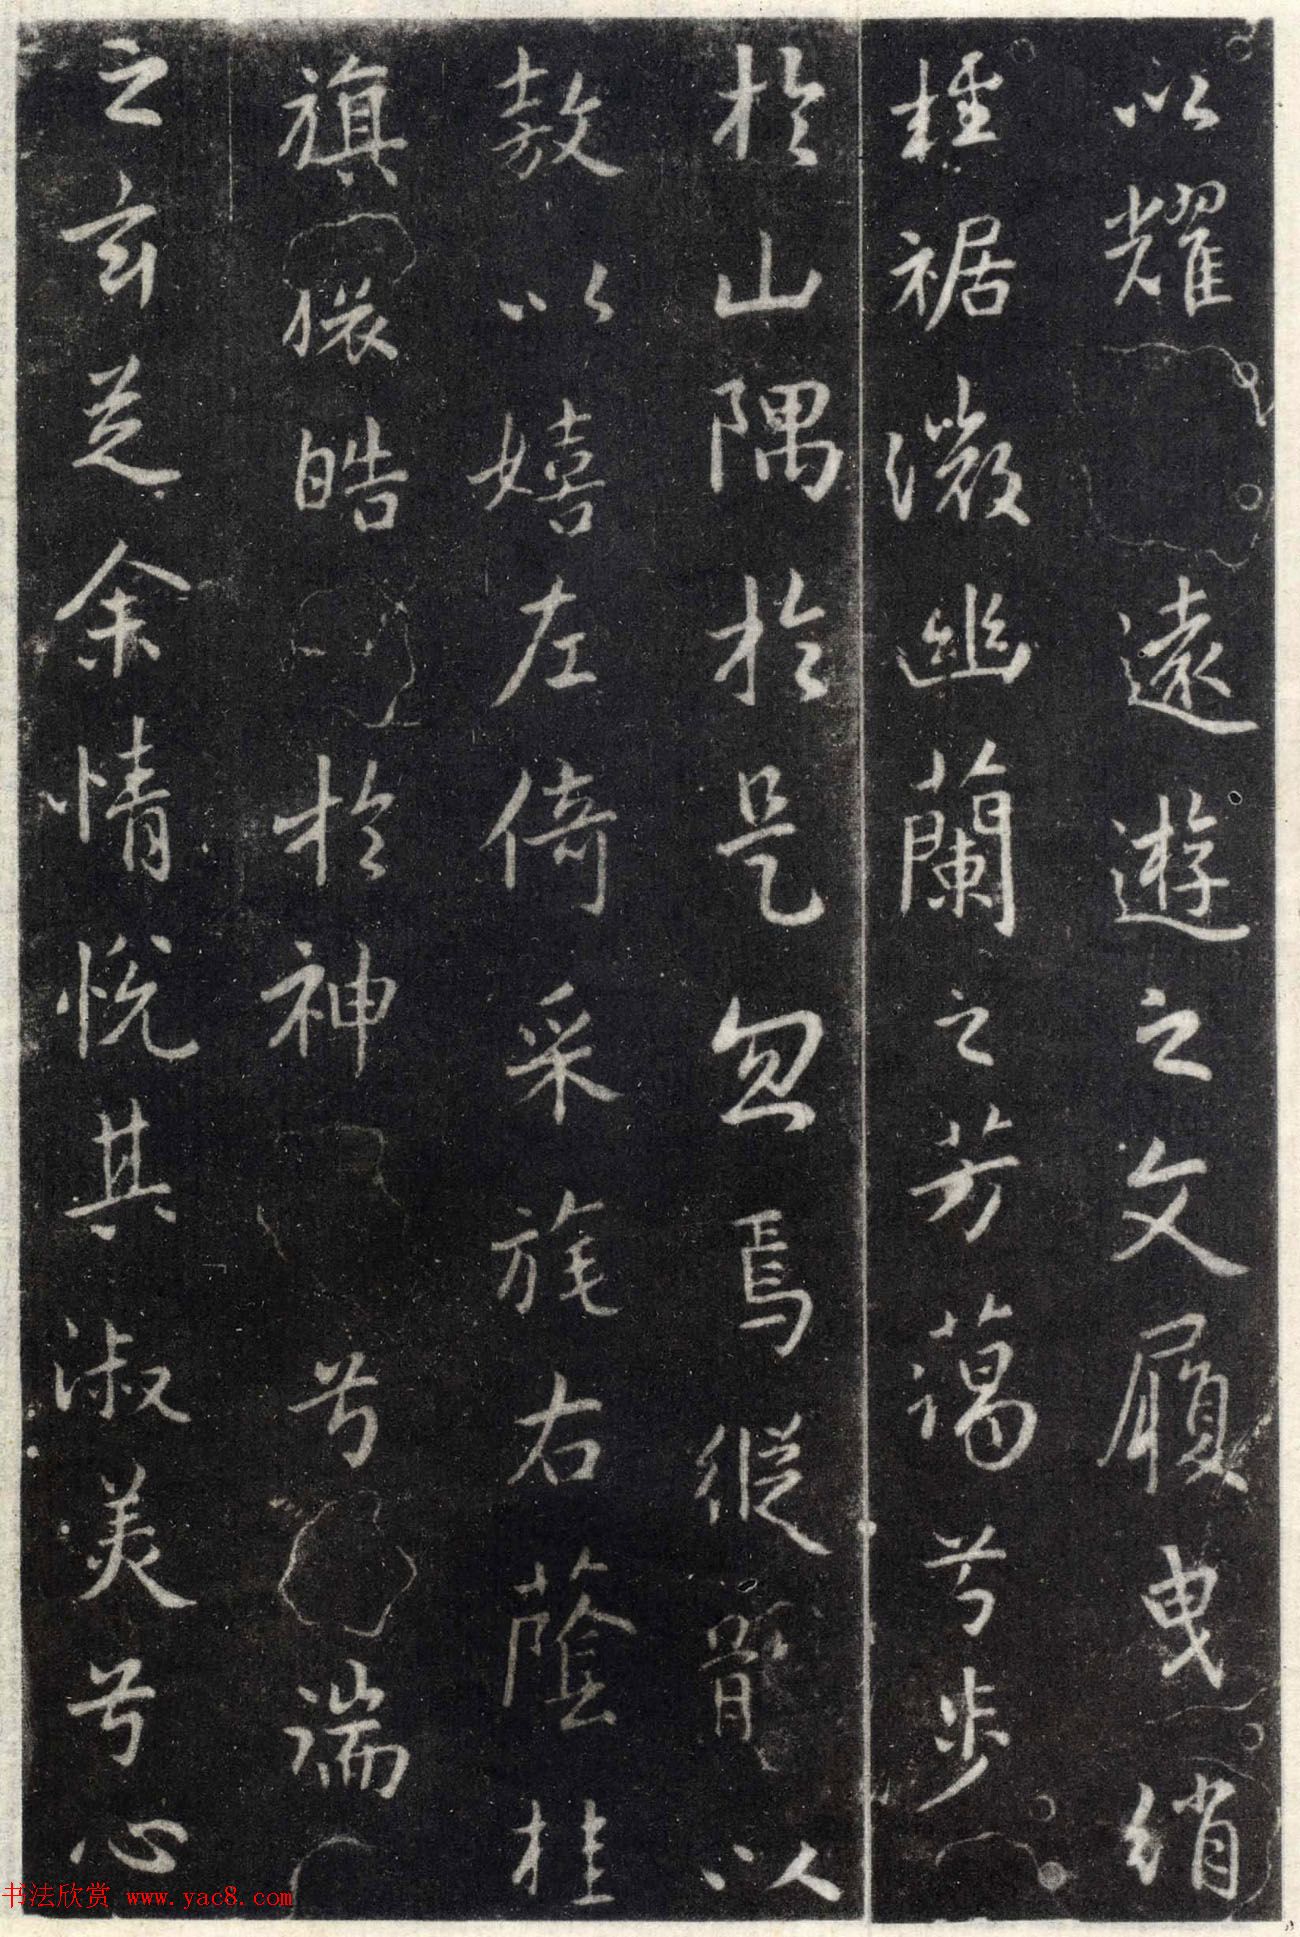 以耀遠遊之文履曳綃
輕裾微幽蘭之芳藹兮步
於山隅於是忽焉縱體以
敖以嬉左倚采旄右蔭桂
旗攘皓於神兮湍
之玄芝余情悦其淑美兮心
书法欣赏 www.yac8.com